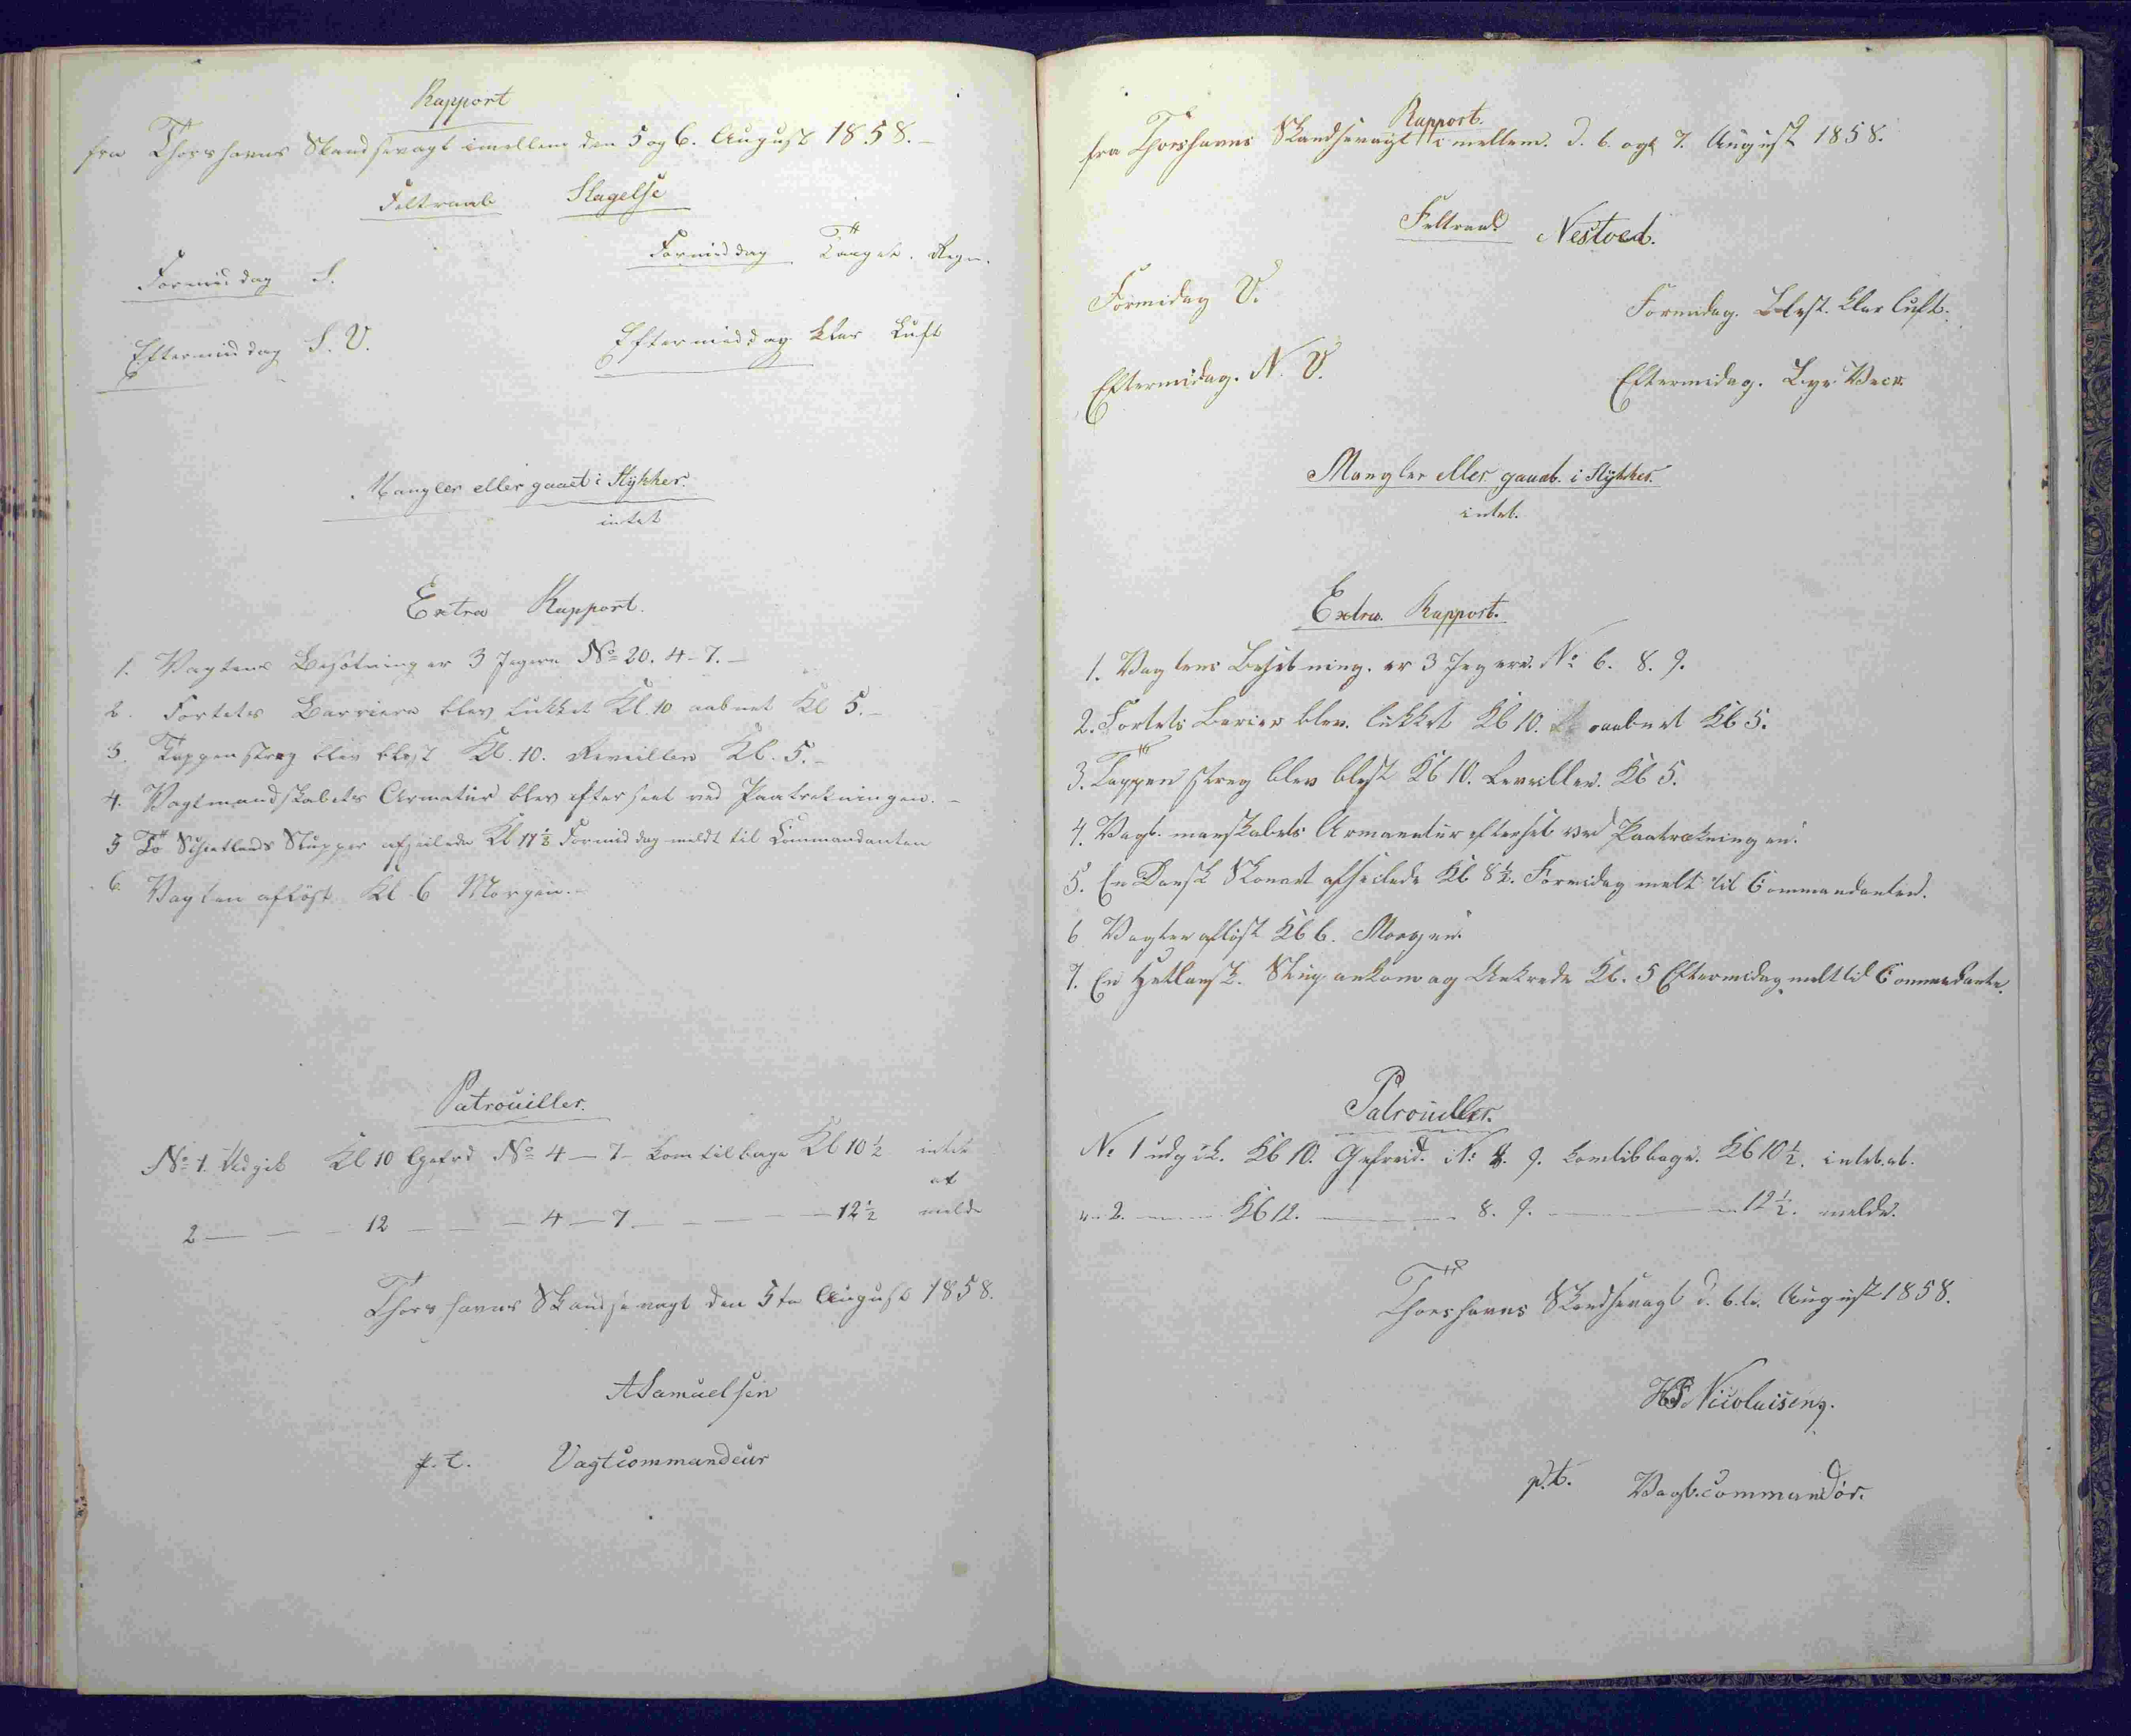 Rapport
fra Thorshavns Skandsevagt imellem den 5 og 6. August 1858.
Feltraab Slagelse
Formiddag Taaget. Regn.
Formiddag S.
Eftermiddag S. V.
Eftermiddag klar Luft
Mangler eller gaaet i Stykker.
intet
Extra Rapport.
1. Vagtens Besætning er 3 Jegere No 20. 4-7.
2. Fortets Barriere blev lukket Kl. 10 aabnet Kl 5.
3. Tappenstreg blev blest Kl. 10. Reveillen Kl. 5.
4. Vagtmandskabets Armatur blev efterseet ved Paatrekningen.
5 To Schetlands Slupper afseilede Kl 11½ Formiddag meldt til Commandanten
6 Vagten afløst Kl 6 Morgen.
Patrouiller.
No 1. Udgik Kl 10 Gefrd No 4 - 7 - kom tilbage Kl 10½ intet
at
2 — 12 — 4 — 7 — 12½ melde
Thorshavns Skandsevagt den 5te August 1858.
A Samuelsen
p. t. Vagtcommandeur
Rapport.
fra Thorshavns Skandsevagt imellem. d. 6. og 7. August 1858.
Feltraab Nestved.
Formidag V.
Formidag. Blest. klar luft.
Eftermidag. N. V.
Eftermidag. Byr Veir
Mangler eller gaaet. i Stykker.
intet.
Extra. Rapport.
1. Vagtens Besetning. er 3 Jegere. No 6. 8. 9.
2. Fortets Barier blev. lukket Kl 10. aabnet Kl 5.
3. Tappenstreg blev blest Kl 10. Reveillen. Kl 5.
4. Vagt. manskabets Armaentur efterset ved Paatrækningen.
5. En Dansk Skonert afseilede Kl 8½. Formidag melt til Commandanten.
6 Vagten afløst Kl 6. Morgen.
7. En Hetlansk. Slup ankom og Ankrede Kl. 5 Eftermidag melt til Commandante.
Patrouiller.
No 1 udgik. Kl 10. Gefreid. No 8. 9. kom tilbage. Kl 10½. intet. at.
" 2. — Kl 12. — 8. 9. — 12½. melde.
Thorshavns Skandsevagt d. 6.te. August 1858.
HS Nicolaisen.
p. t. Vagt.commandør.